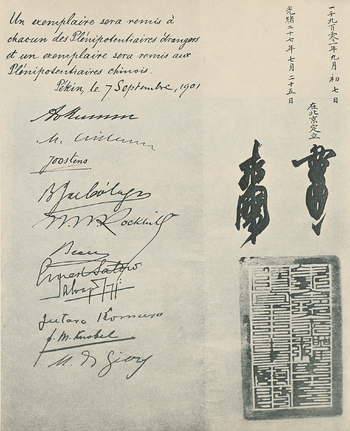 Un exemplaire sera remis à
chacun des Plénipotentiaires étrangers
et un exemplaire sera remis aux
Plénipotentiaires chinois.
Pékin, le 7 Septembre, 1901
Joostens
B. J. de Cólogan
W. W. Rockhill
Beau
Ernest Satow
Jutaro Komura
F. M. Knobel
M. de Giers
一千九百零一年九月初七日
在北京定立
光緒二十七年七月二十五日